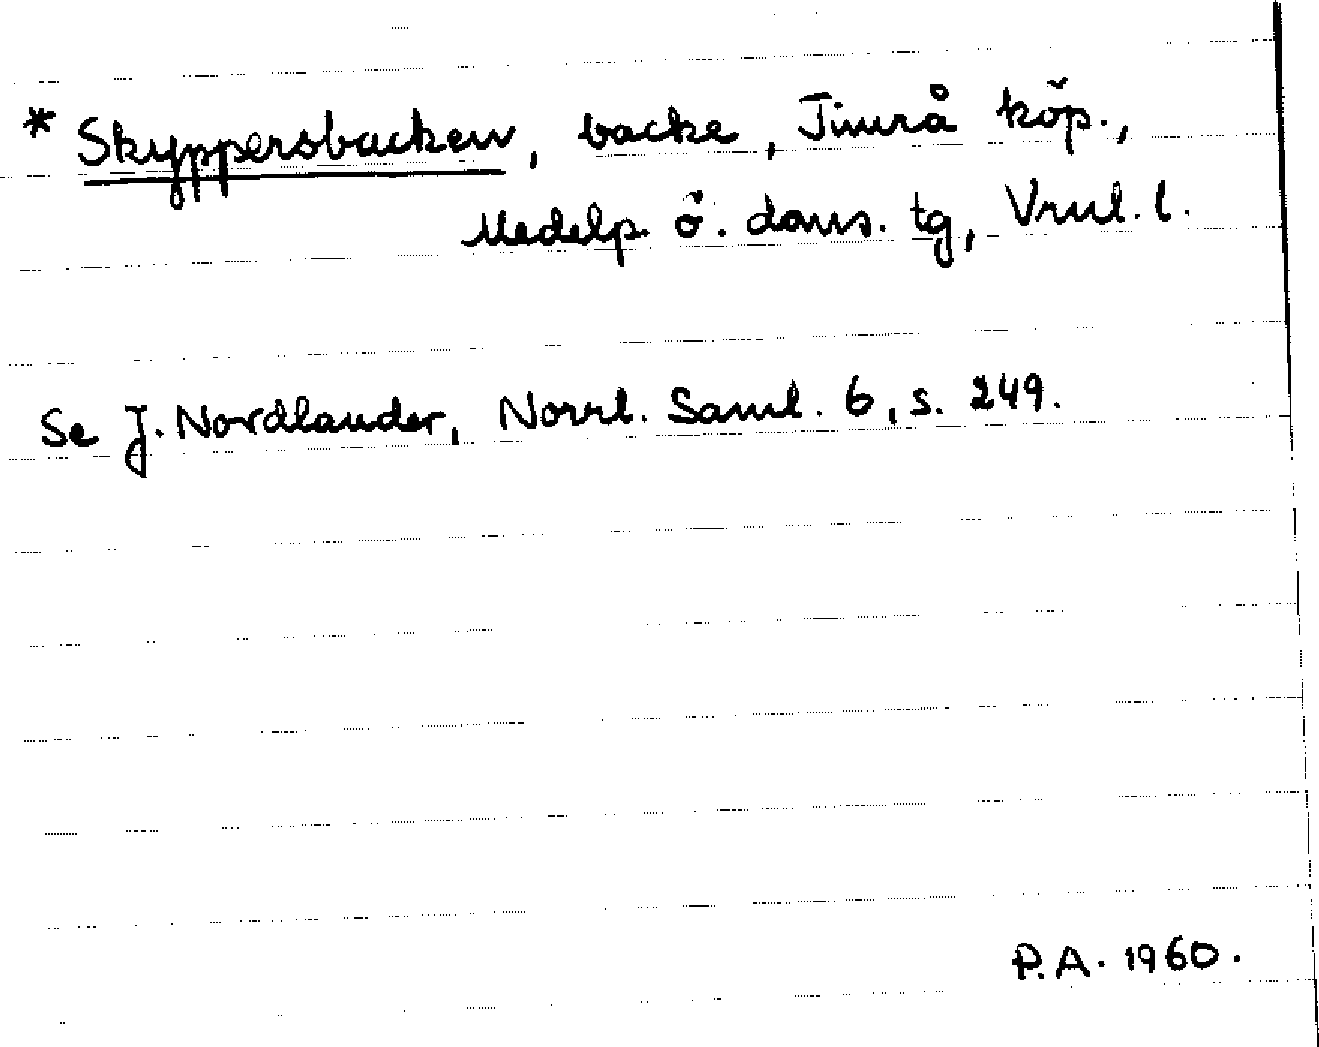 * Skyppersbacken, backe, Timrå köp.,
Medelp. ö. doms. tg, Vrnl. l.
Se J. Nordlander, Norrl. Saml. 6, s. 249.
P.A. 1960.